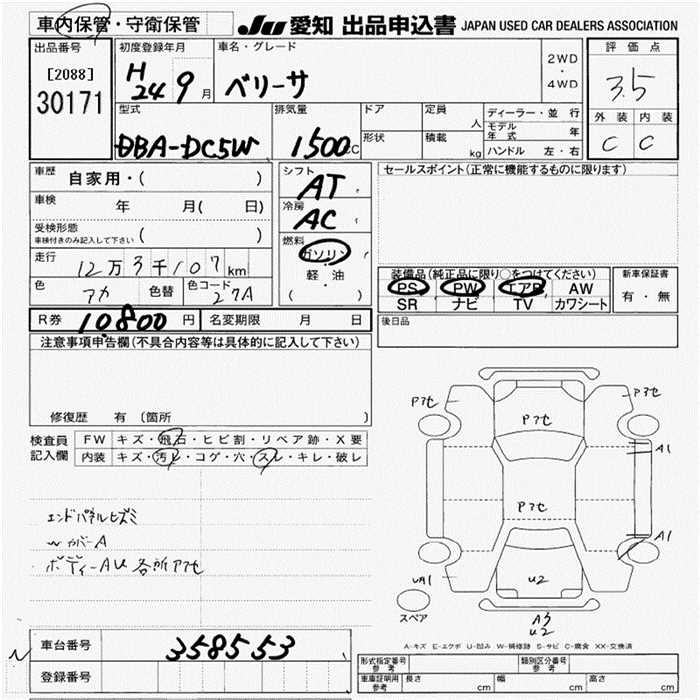 車内保管・守衛保管
JU 愛知 出品申込書 JAPAN USED CAR DEALERS ASSOCIATION
出品番号
[2088]
30171
初度登録年月
H24 9月
車名・グレード
ベリーサ
2WD
・
4WD
評価点
3.5
外装 内装
C C
型式
DBA-DC5W
排気量
1500CC
ドア
形状
定員
人
積載
kg
ディーラー・並行
モデル年式 年
ハンドル 左・右
車歴
自家用・( )
車検
年 月( 日)
受検形態
車検付きのみ記入して下さい ( )
走行
12万3千107km
色
アカ
色替
色コード
27A
シフト
AT
冷房
AC
燃料
ガソリン
軽・油
( )
セールスポイント(正常に機能するものに限ります)
装備品(純正品に限り○をつけてください)
PS PW エアB AW
SR ナビ TV カワシート
新車保証書
有・無
R券 10,800円
名変期限 月 日
後日品
注意事項申告欄(不具合内容等は具体的に記入して下さい)
修復歴 有 (箇所 )
検査員
記入欄
FW キズ・飛石・ヒビ割・リペア跡・X要
内装 キズ・汚レ・コゲ・穴・スレ・キレ・破レ
エンドパネルヒズミ
〃 カバーA
ボディーAU各所アセ
Pアセ
Pアセ
Pアセ
A1
Pアセ
A1
UA1
U2
スペア
A3
U2
A-キズ E-エクボ U-凹み W-補修跡 S-サビ C-腐食 XX-交換済
車台番号 358553
登録番号
形式指定番号
参考
類別区分番号
参考
車庫証明用
参考
長さ cm
幅 cm
高さ cm